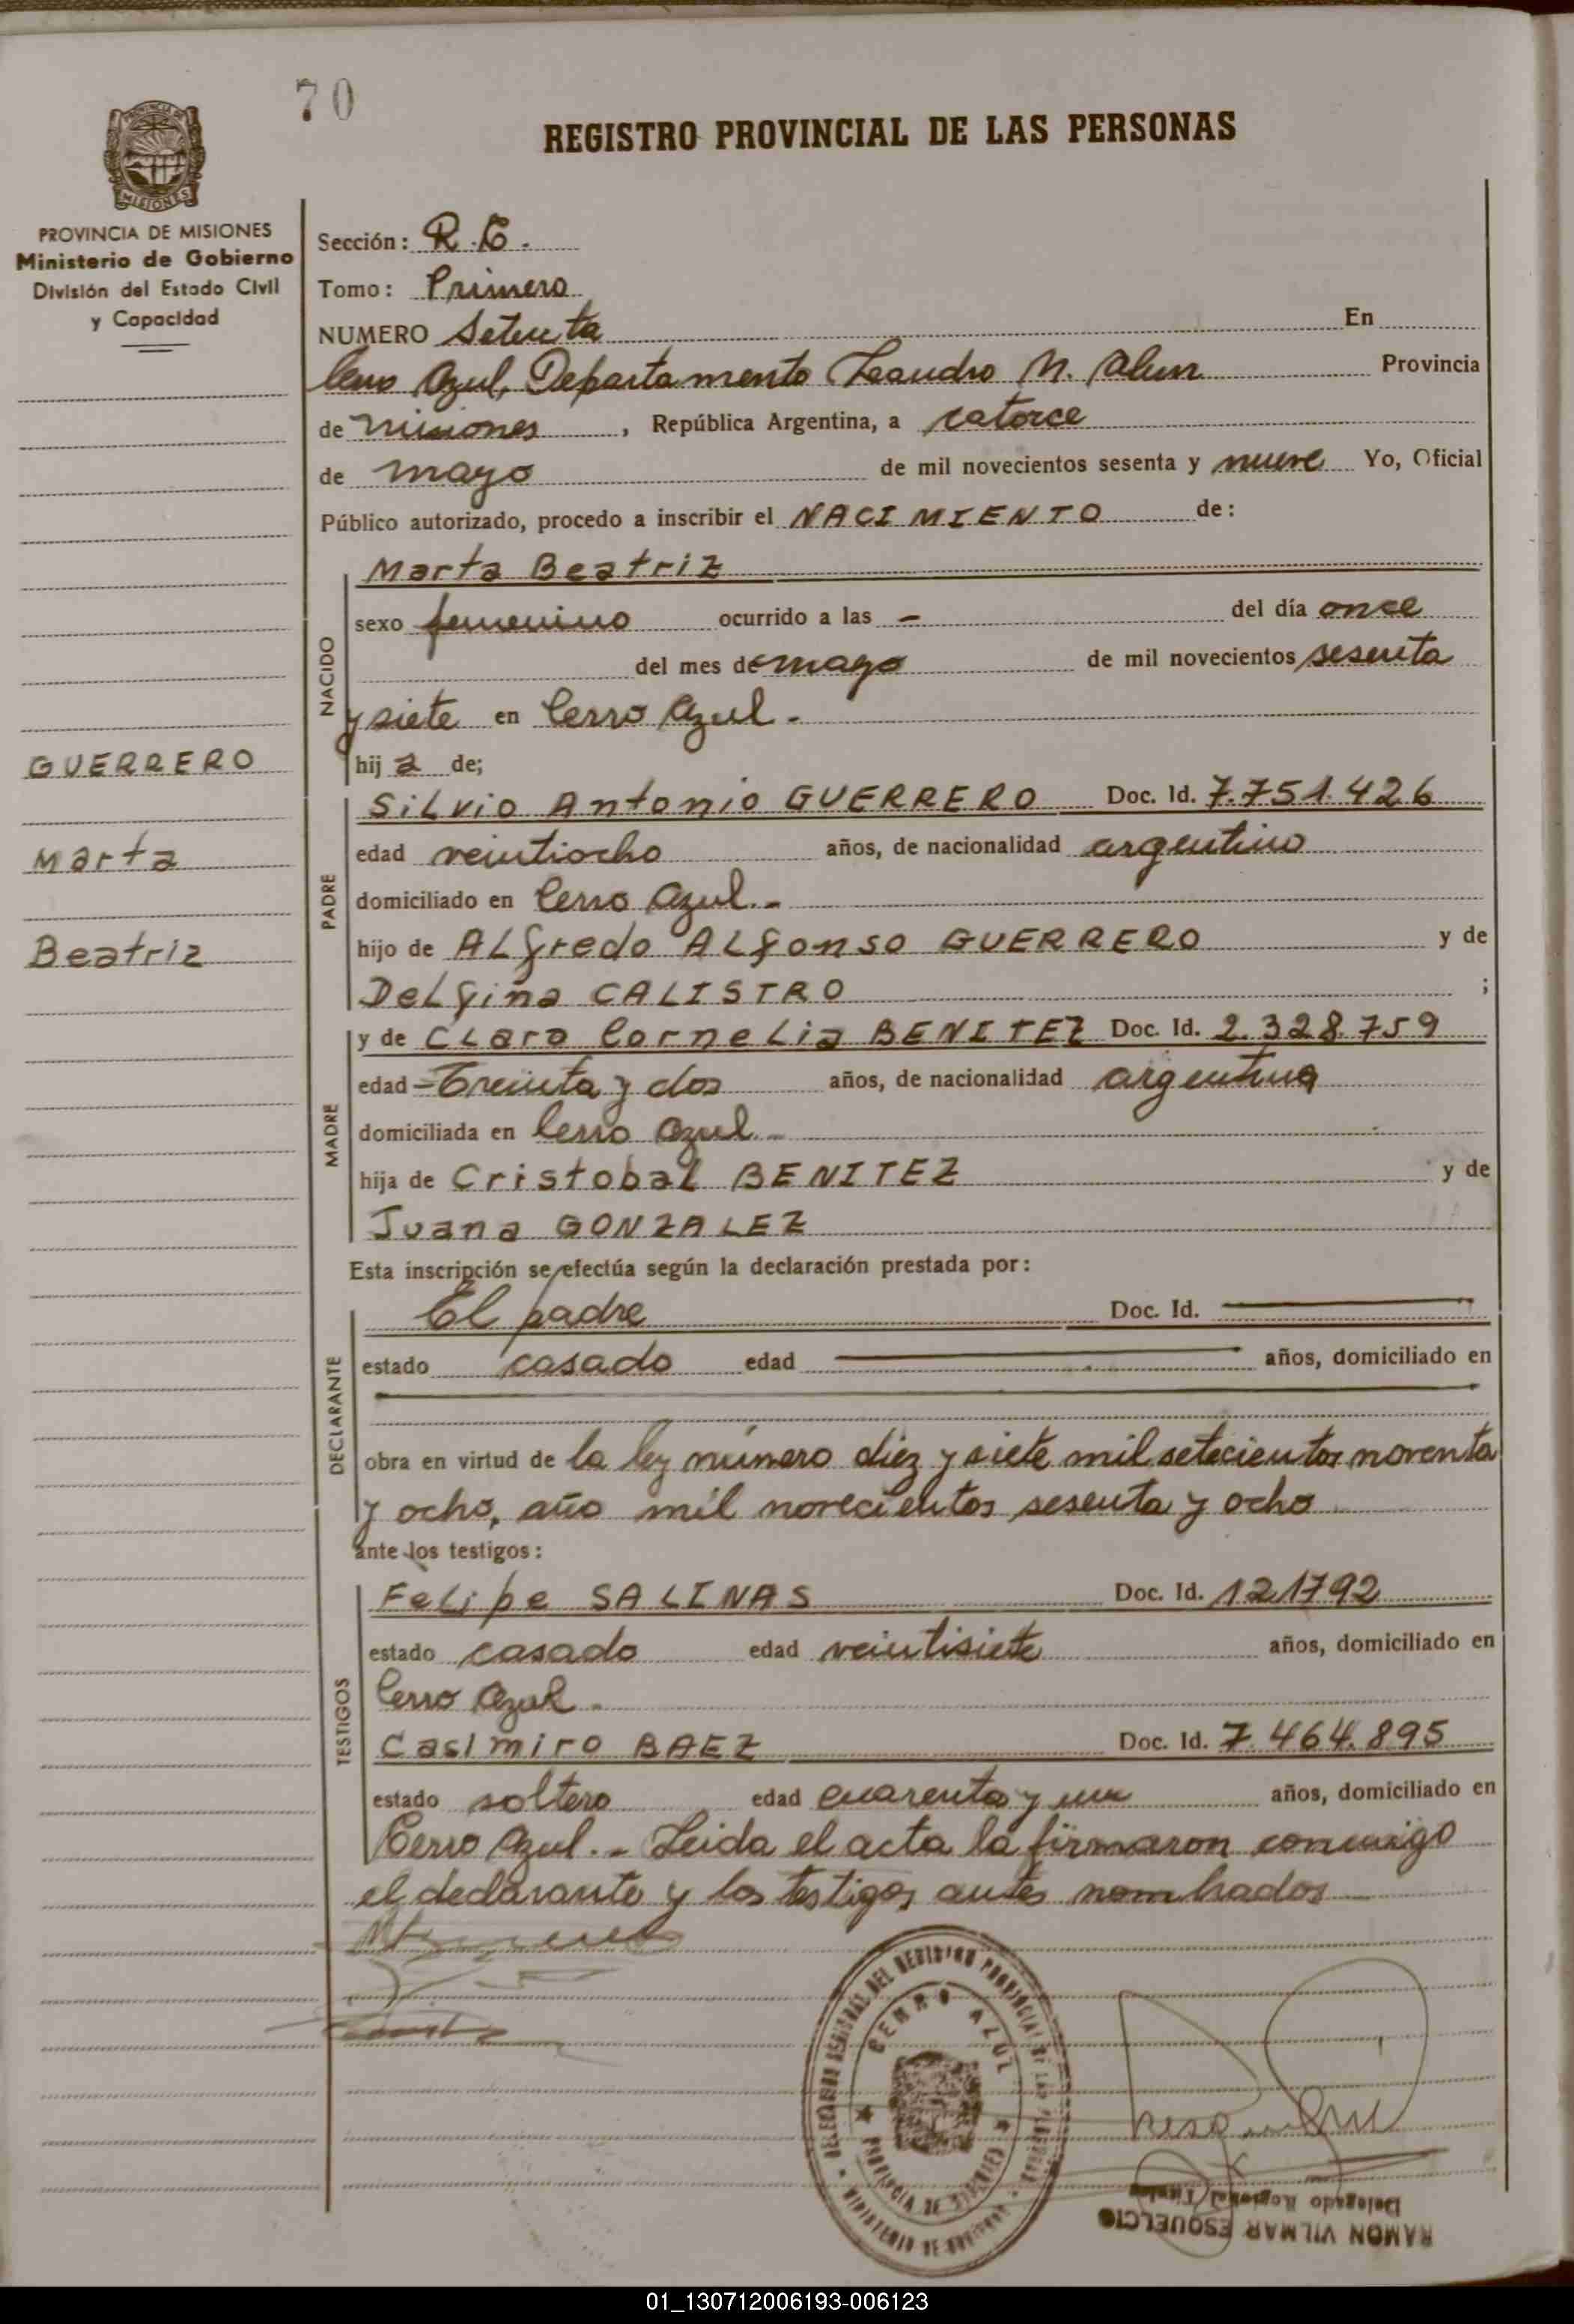 70
REGISTRO PROVINCIAL DE LAS PERSONAS
PROVINCIA DE MISIONES
Ministerio de Gobierno
División del Estado Civil
y Capacidad
Sección: R.E.
Tomo: Primero
NUMERO Setenta En
Cerro Azul, Departamento Leandro N. Alem Provincia
de Misiones, República Argentina, a catorce
de mayo de mil novecientos sesenta y nueve Yo, Oficial
Público autorizado, procedo a inscribir el NACIMIENTO de:
NACIDO
Marta Beatriz
sexo femenino ocurrido a las - del día once
del mes de mayo de mil novecientos sesenta
y siete en Cerro Azul.-
hija de;
GUERRERO
Marta
Beatriz
PADRE
Silvio Antonio GUERRERO Doc. Id. 7.751.426
edad veintiocho años, de nacionalidad argentino
domiciliado en Cerro Azul.-
hijo de Alfredo Alfonso GUERRERO y de
Delfina CALISTRO ;
MADRE
y de Clara Cornelia BENITEZ Doc. Id. 2.328.759
edad Treinta y dos años, de nacionalidad argentina
domiciliada en Cerro Azul.-
hija de Cristobal BENITEZ y de
Juana GONZALEZ
Esta inscripción se efectúa según la declaración prestada por:
DECLARANTE
El padre Doc. Id.
estado casado edad años, domiciliado en
obra en virtud de la ley número diez y siete mil setecientos noventa
y ocho, año mil novecientos sesenta y ocho
ante los testigos:
TESTIGOS
Felipe SALINAS Doc. Id. 121792
estado casado edad veintisiete años, domiciliado en
Cerro Azul.-
Casimiro BAEZ Doc. Id. 7.464.895
estado soltero edad cuarenta y un años, domiciliado en
Cerro Azul.- Leida el acta la firmaron conmigo
el declarante y los testigos antes nombrados
CERRO AZUL
PROVINCIA DE MISIONES
RAMON VILMAR ESQUELCIO
Delegado Regional Titular
01_130712006193-006123